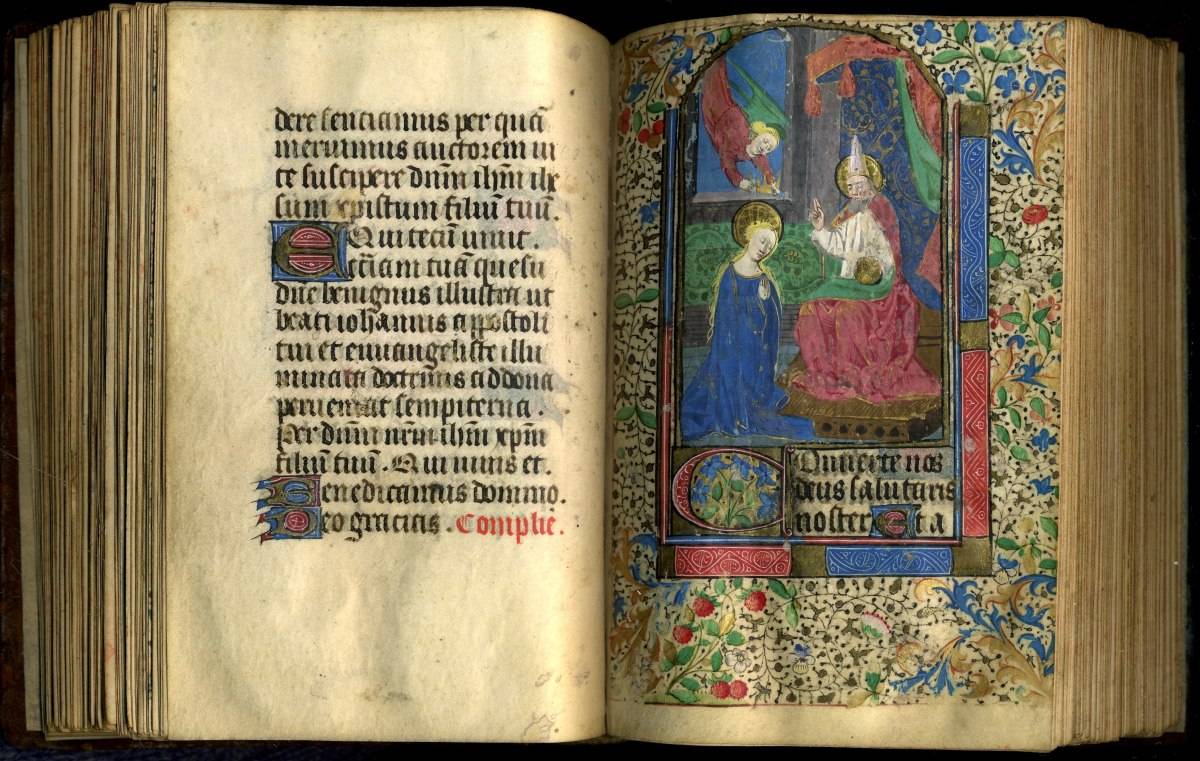 dere senciamus per quā
meruimus auctorem ui
te suscipere dn̄m ihm̄ ihe
sum xpistum filiū tuū.
Qui tecū uiuit.
Ecc̄iam tuā quesu
dn̄e benignus illustra ut
beati iohannis appostoli
tui et euuangeliste illu
minata doctrinis ad dona
perueniat sempiterna.
Per dn̄m nr̄m ihm̄ xpm̄
filiū tuū. Qui uiuis et.
Benedicamus domino.
Deo gracias. Complie.
Conuerte nos
deus salutaris
noster Et a